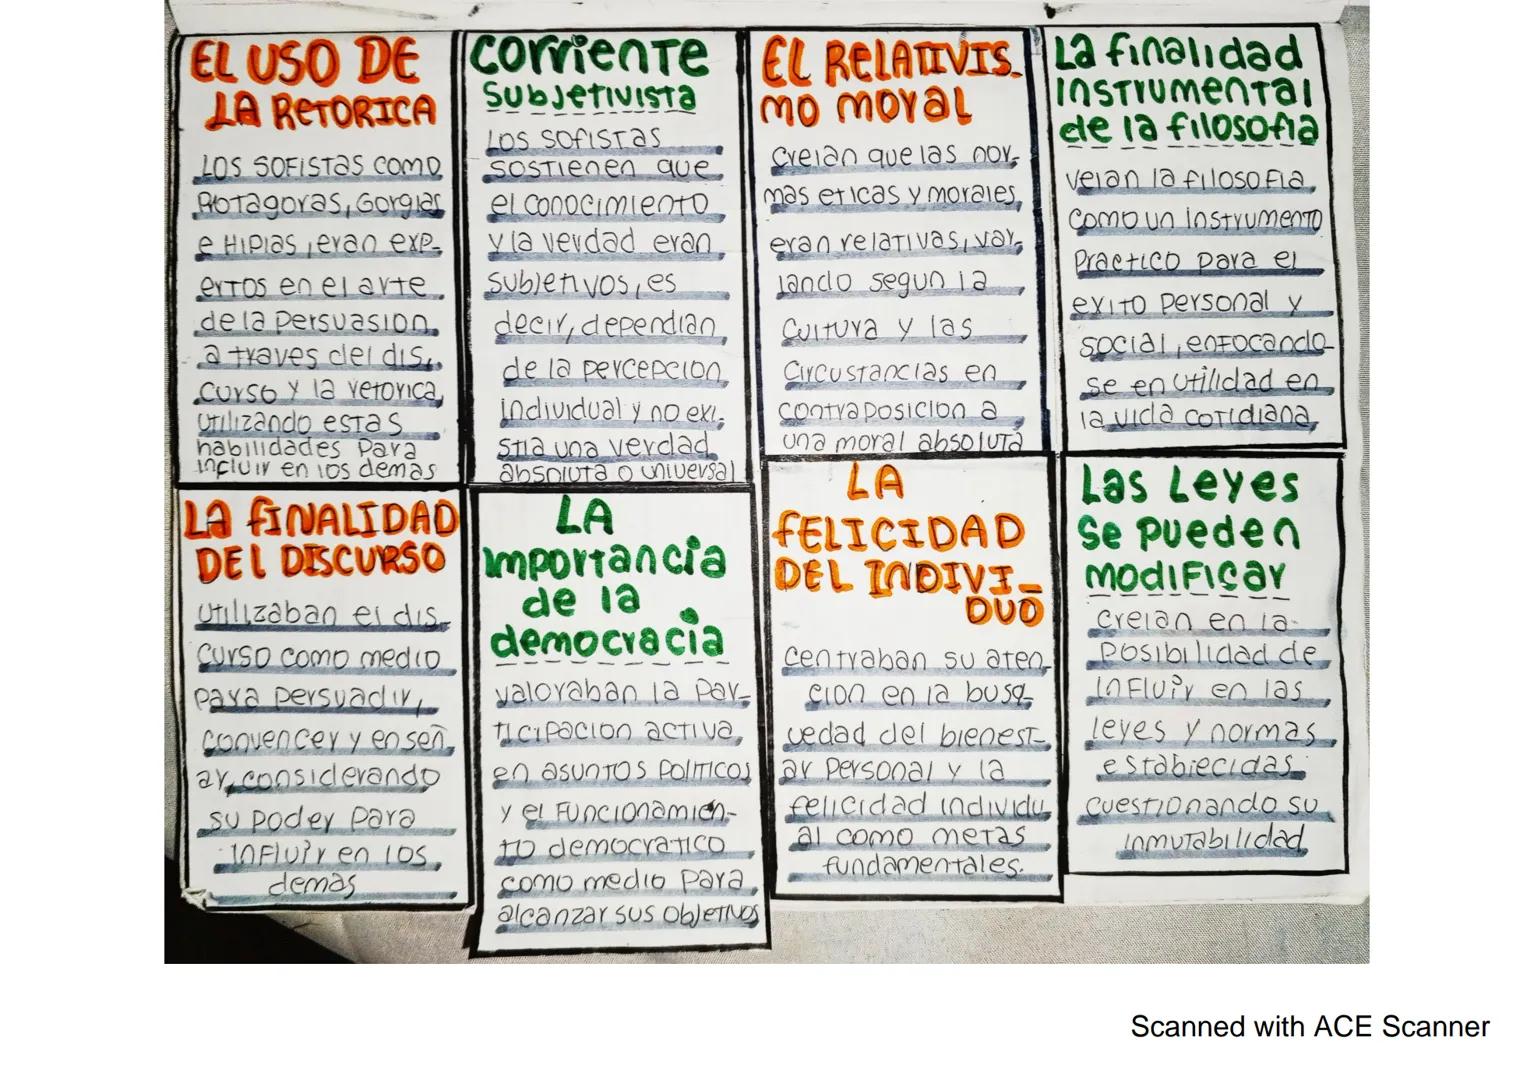 EL USO DE
LA RETORICA
LOS SOFISTAS COMO
Protagoras, Gorgias
e HIPIAS, eran exp-
ertos en el arte
de la persuasion,
a traves del dis,
curso y la retorica,
utilizando estas
habilidades para
incluir en los demas
Corriente
Subjetivista
Los sofistas
sostienen que
el conocimiento
y la verdad eran
subjetivos, es
decir, dependian
de la percepcion
individual y no exi-
stia una verdad
absoluta o universal
EL RELATIVIS-
MO MORAL
creian que las nor-
mas eticas y morales,
eran relativas, var-
iando segun la
cultura y las
circustancias en
contraposicion a
una moral absoluta
La finalidad
instrumental
de la filosofia
veian la filosofia
como un instrumento
practico para el
exito personal y
social, enfocando-
se en utilidad en
la vida cotidiana,
LA FINALIDAD
DEL DISCURSO
utilizaban el dis-
curso como medio
para persuadir,
convencer y enseñ,
ar, considerando
su poder para
influir en los
demas
LA
importancia
de la
democracia
valoraban la par-
ticipacion activa,
en asuntos politicos
y el funcionamien-
to democratico
como medio para
alcanzar sus objetivos
LA
FELICIDAD
DEL INDIVI-
DUO
centraban su aten-
cion en la busq-
uedad del bienest-
ar personal y la
felicidad individu
al como metas
fundamentales.
Las Leyes
Se pueden
modificar
creian en la
posibilidad de
influir en las
leyes y normas
establecidas
cuestionando su
inmutabilidad
Scanned with ACE Scanner